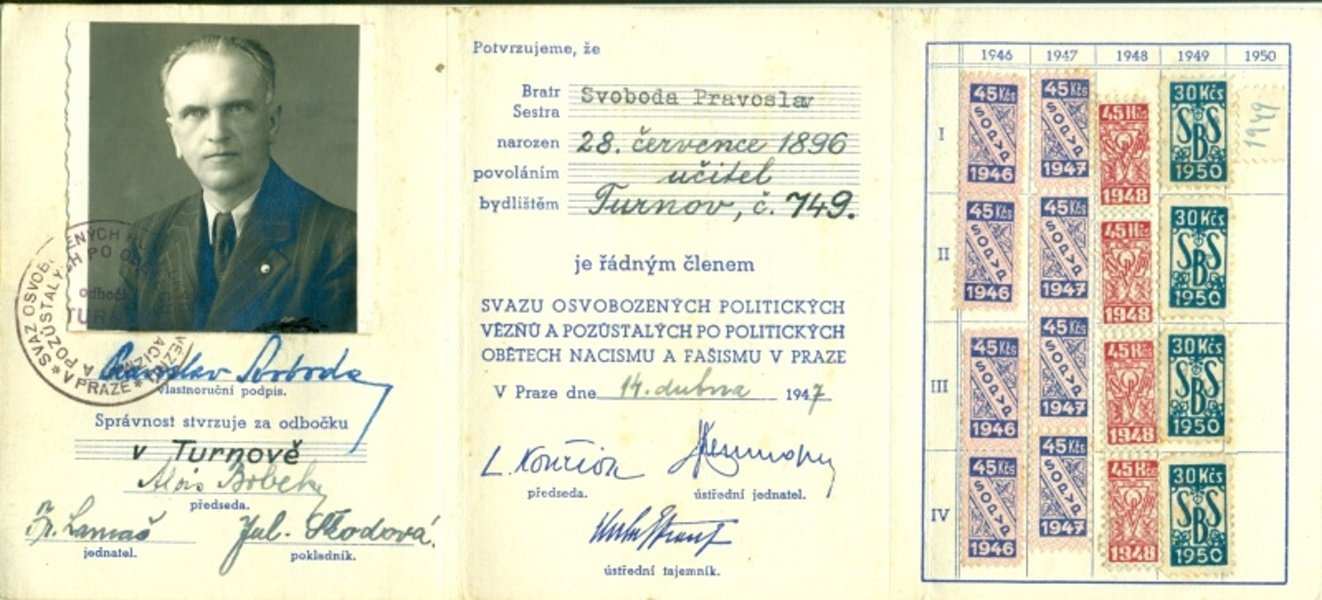 SVAZ OSVOBOZENÝCH
A POZŮSTALÝCH PO
V PRAZE
odboč
TURN
Pravoslav Svoboda
vlastnoruční podpis.
Správnost stvrzuje za odbočku
v Turnově
Alois
předseda.
Fr. Lamač Jul. Škodová.
jednatel. pokladník.
Potvrzujeme, že
Bratr
Sestra
Svoboda Pravoslav
narozen 28. července 1896
povoláním učitel
bydlištěm Turnov, č. 749.
je řádným členem
SVAZU OSVOBOZENÝCH POLITICKÝCH
VĚZŇŮ A POZŮSTALÝCH PO POLITICKÝCH
OBĚTECH NACISMU A FAŠISMU V PRAZE
V Praze dne 14. dubna 1947
předseda. ústřední jednatel.
ústřední tajemník.
1946 1947 1948 1949 1950
I
45 Kčs SOPVP 1946
45 Kčs SOPVP 1947
45 Kčs 1948
30 Kčs SBS 1950
1949
II
45 Kčs SOPVP 1946
45 Kčs SOPVP 1947
45 Kčs 1948
30 Kčs SBS 1950
III
45 Kčs SOPVP 1946
45 Kčs SOPVP 1947
45 Kčs 1948
30 Kčs SBS 1950
IV
45 Kčs SOPVP 1946
45 Kčs SOPVP 1947
45 Kčs 1948
30 Kčs SBS 1950